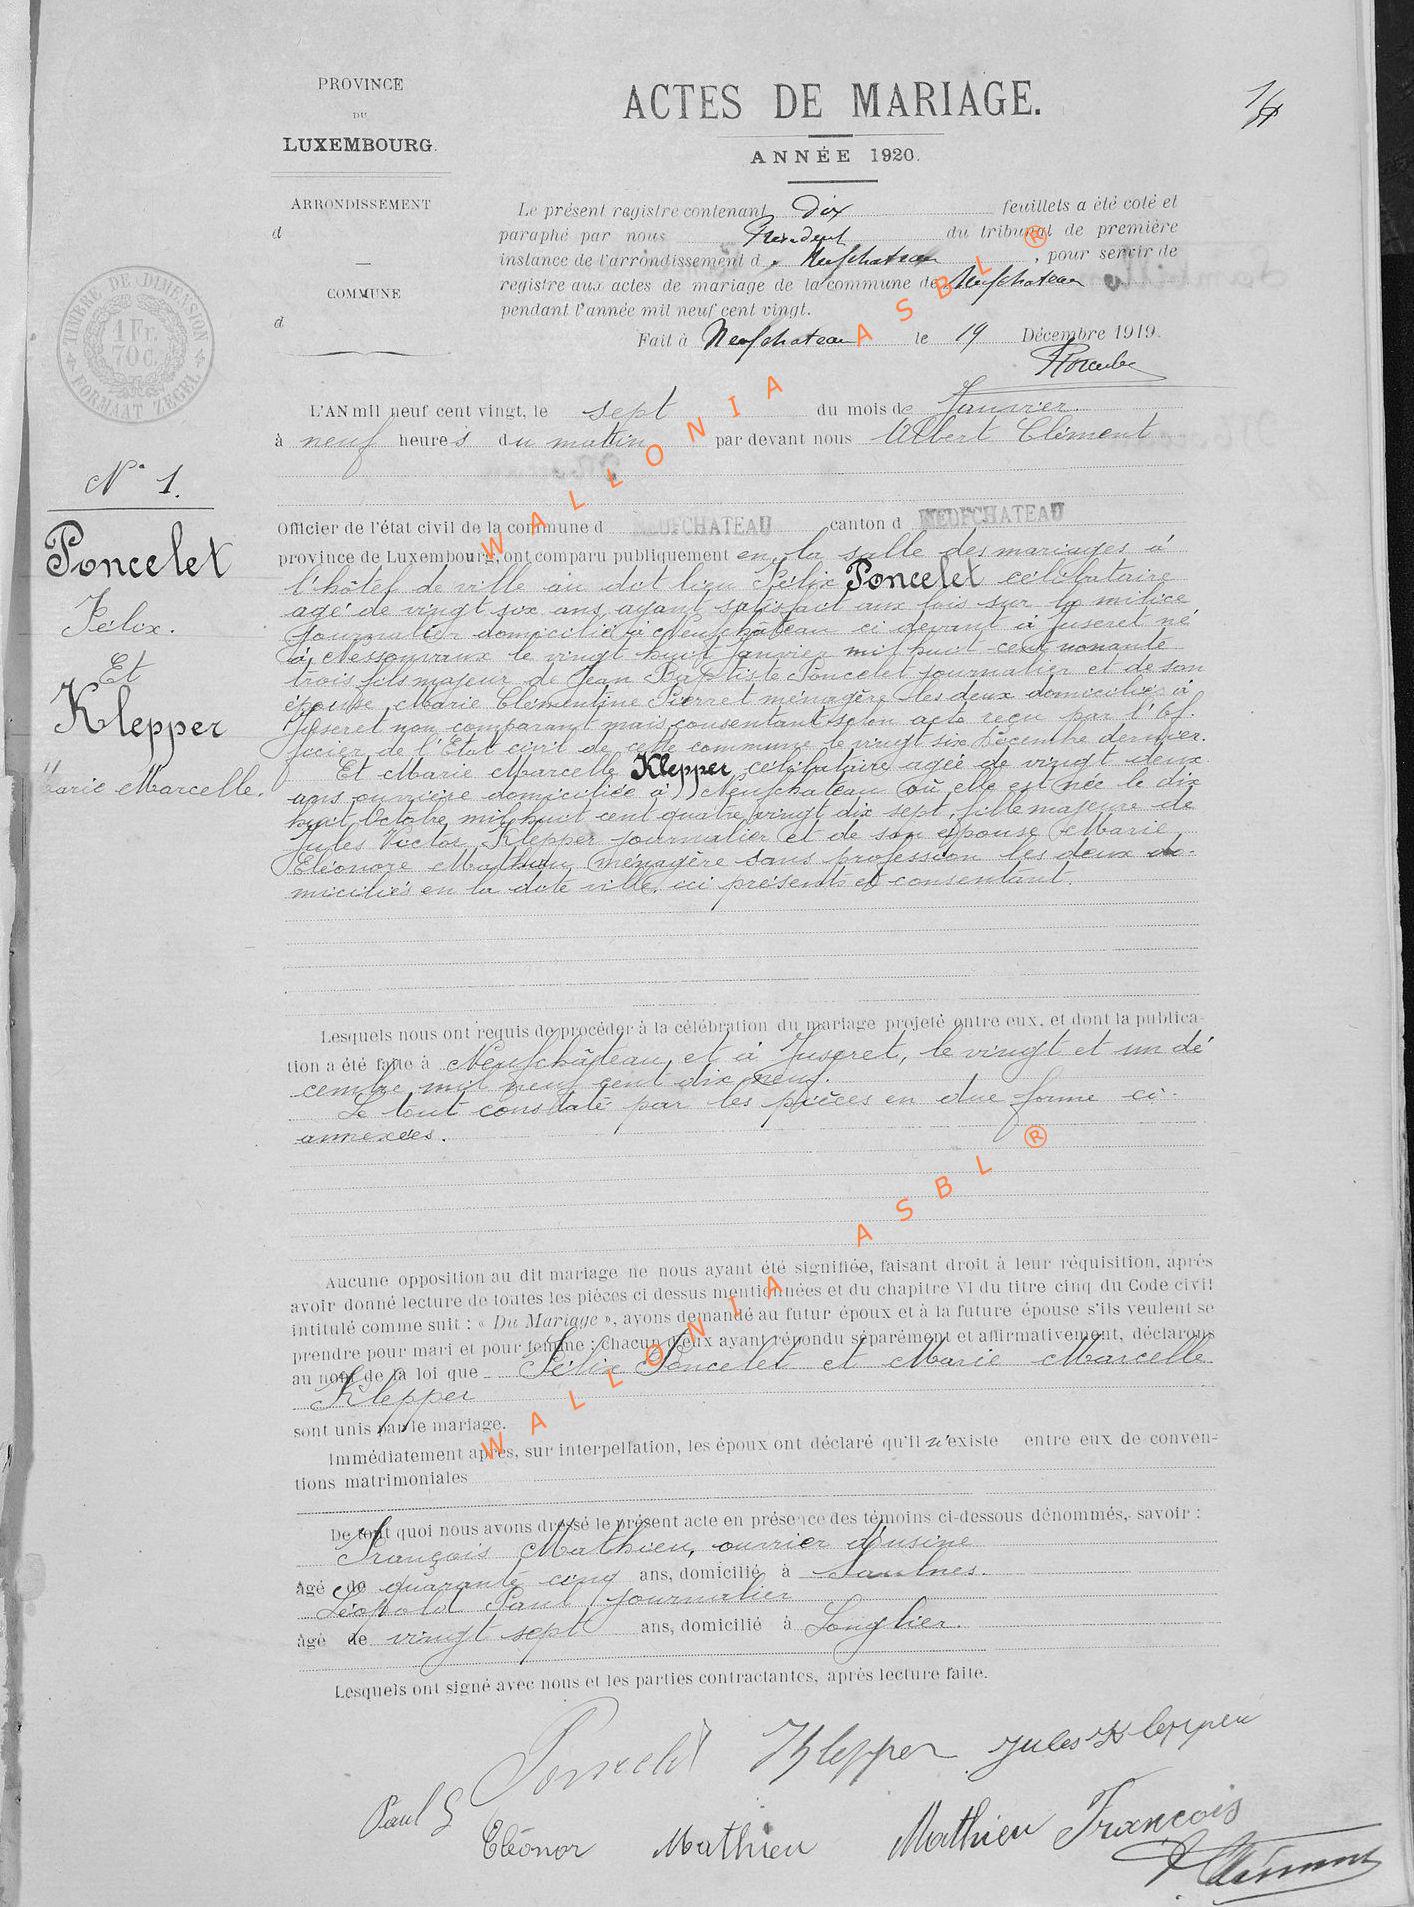 PROVINCE
DU
LUXEMBOURG.
ARRONDISSEMENT
d
COMMUNE
d
TIMBRE DE DIMENSION
1 Fr.
70 C.
FORMAAT ZEGEL
ACTES DE MARIAGE.
ANNÉE 1920.
Le présent registre contenant dix feuillets a été coté et
paraphé par nous Président du tribunal de première
instance de l'arrondissement d Neufchateau, pour servir de
registre aux actes de mariage de la commune de Neufchateau
pendant l'année mil neuf cent vingt.
Fait à Neufchateau le 19 Décembre 1919.
N° 1.
Poncelet
Félix.
Et
Klepper
Marie Marcelle.
L'AN mil neuf cent vingt, le sept du mois de Janvier
à neuf heures du matin par devant nous Albert Clément
Officier de l'état civil de la commune d NEUFCHATEAU canton d NEUFCHATEAU
province de Luxembourg, ont comparu publiquement en la salle des mariages à
l'hôtel de ville au dit lieu Félix Poncelet célibataire
agé de vingt six ans ayant satisfait aux lois sur la milice
journalier domicilié à Neufchâteau ci devant à Juseret né
à Nessonvaux le vingt huit Janvier mil huit cent nonante
trois fils majeur de Jean Baptiste Poncelet journalier et de son
épouse Marie Clémentine Pierret ménagère les deux domiciliés à
Juseret non comparant mais consentant selon acte reçu par l'Of-
ficier de l'Etat civil de cette commune le vingt six Décembre dernier.
Et Marie Marcelle Klepper, célibataire agée de vingt deux
ans ouvrière domiciliée à Neufchateau où elle est née le dix
huit Octobre mil huit cent quatre vingt dix sept, fille majeure de
Jules Victor Klepper journalier et de son épouse Marie
Eléonore Mathieu ménagère sans profession les deux do-
miciliés en la dite ville, ici présents et consentant.
Lesquels nous ont requis de procéder à la célébration du mariage projeté entre eux, et dont la publica-
tion a été faite à Neufchâteau et à Juseret, le vingt et un dé
cembre mil neuf cent dix neuf.
Le tout constaté par les pièces en due forme ci-
annexées.
Aucune opposition au dit mariage ne nous ayant été signifiée, faisant droit à leur réquisition, après
avoir donné lecture de toutes les pièces ci dessus mentionnées et du chapitre VI du titre cinq du Code civil
intitulé comme suit : « Du Mariage », avons demandé au futur époux et à la future épouse s'ils veulent se
prendre pour mari et pour femme : chacun d'eux ayant répondu séparément et affirmativement, déclarons
au nom de la loi que Félix Poncelet et Marie Marcelle
Klepper
sont unis par le mariage.
Immédiatement après, sur interpellation, les époux ont déclaré qu'il n'existe entre eux de conven-
tions matrimoniales
De tout quoi nous avons dressé le présent acte en présence des témoins ci-dessous dénommés, savoir :
François Mathieu, ouvrier d'usine
âgé de quarante cinq ans, domicilié à Saulnes.
Léopold Paul journalier
âgé de vingt sept ans, domicilié à Longlier.
Lesquels ont signé avec nous et les parties contractantes, après lecture faite.
Poncelet Klepper Jules Klepper
Paul L
Eléonor Mathieu Mathieu François
A Clément
WALLONIA ASBL ®
WALLONIA ASBL ®